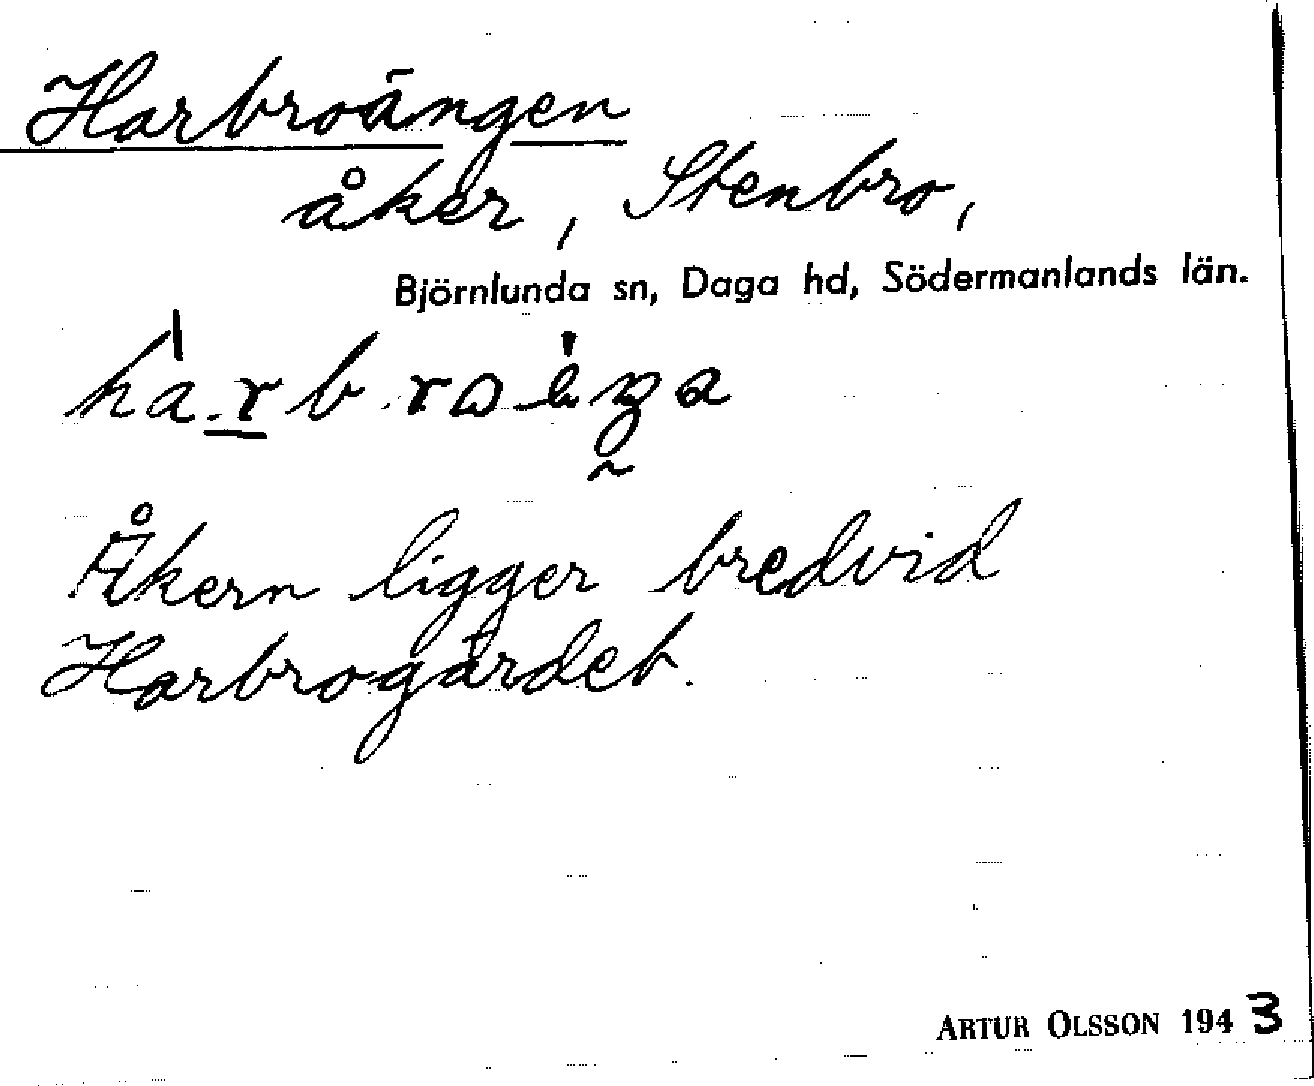 Harbroängen
åker, Stenbro,
Björnlunda sn, Daga hd, Södermanlands län.
Åkern ligger bredvid
Harbrogärdet.
ARTUR OLSSON 1943